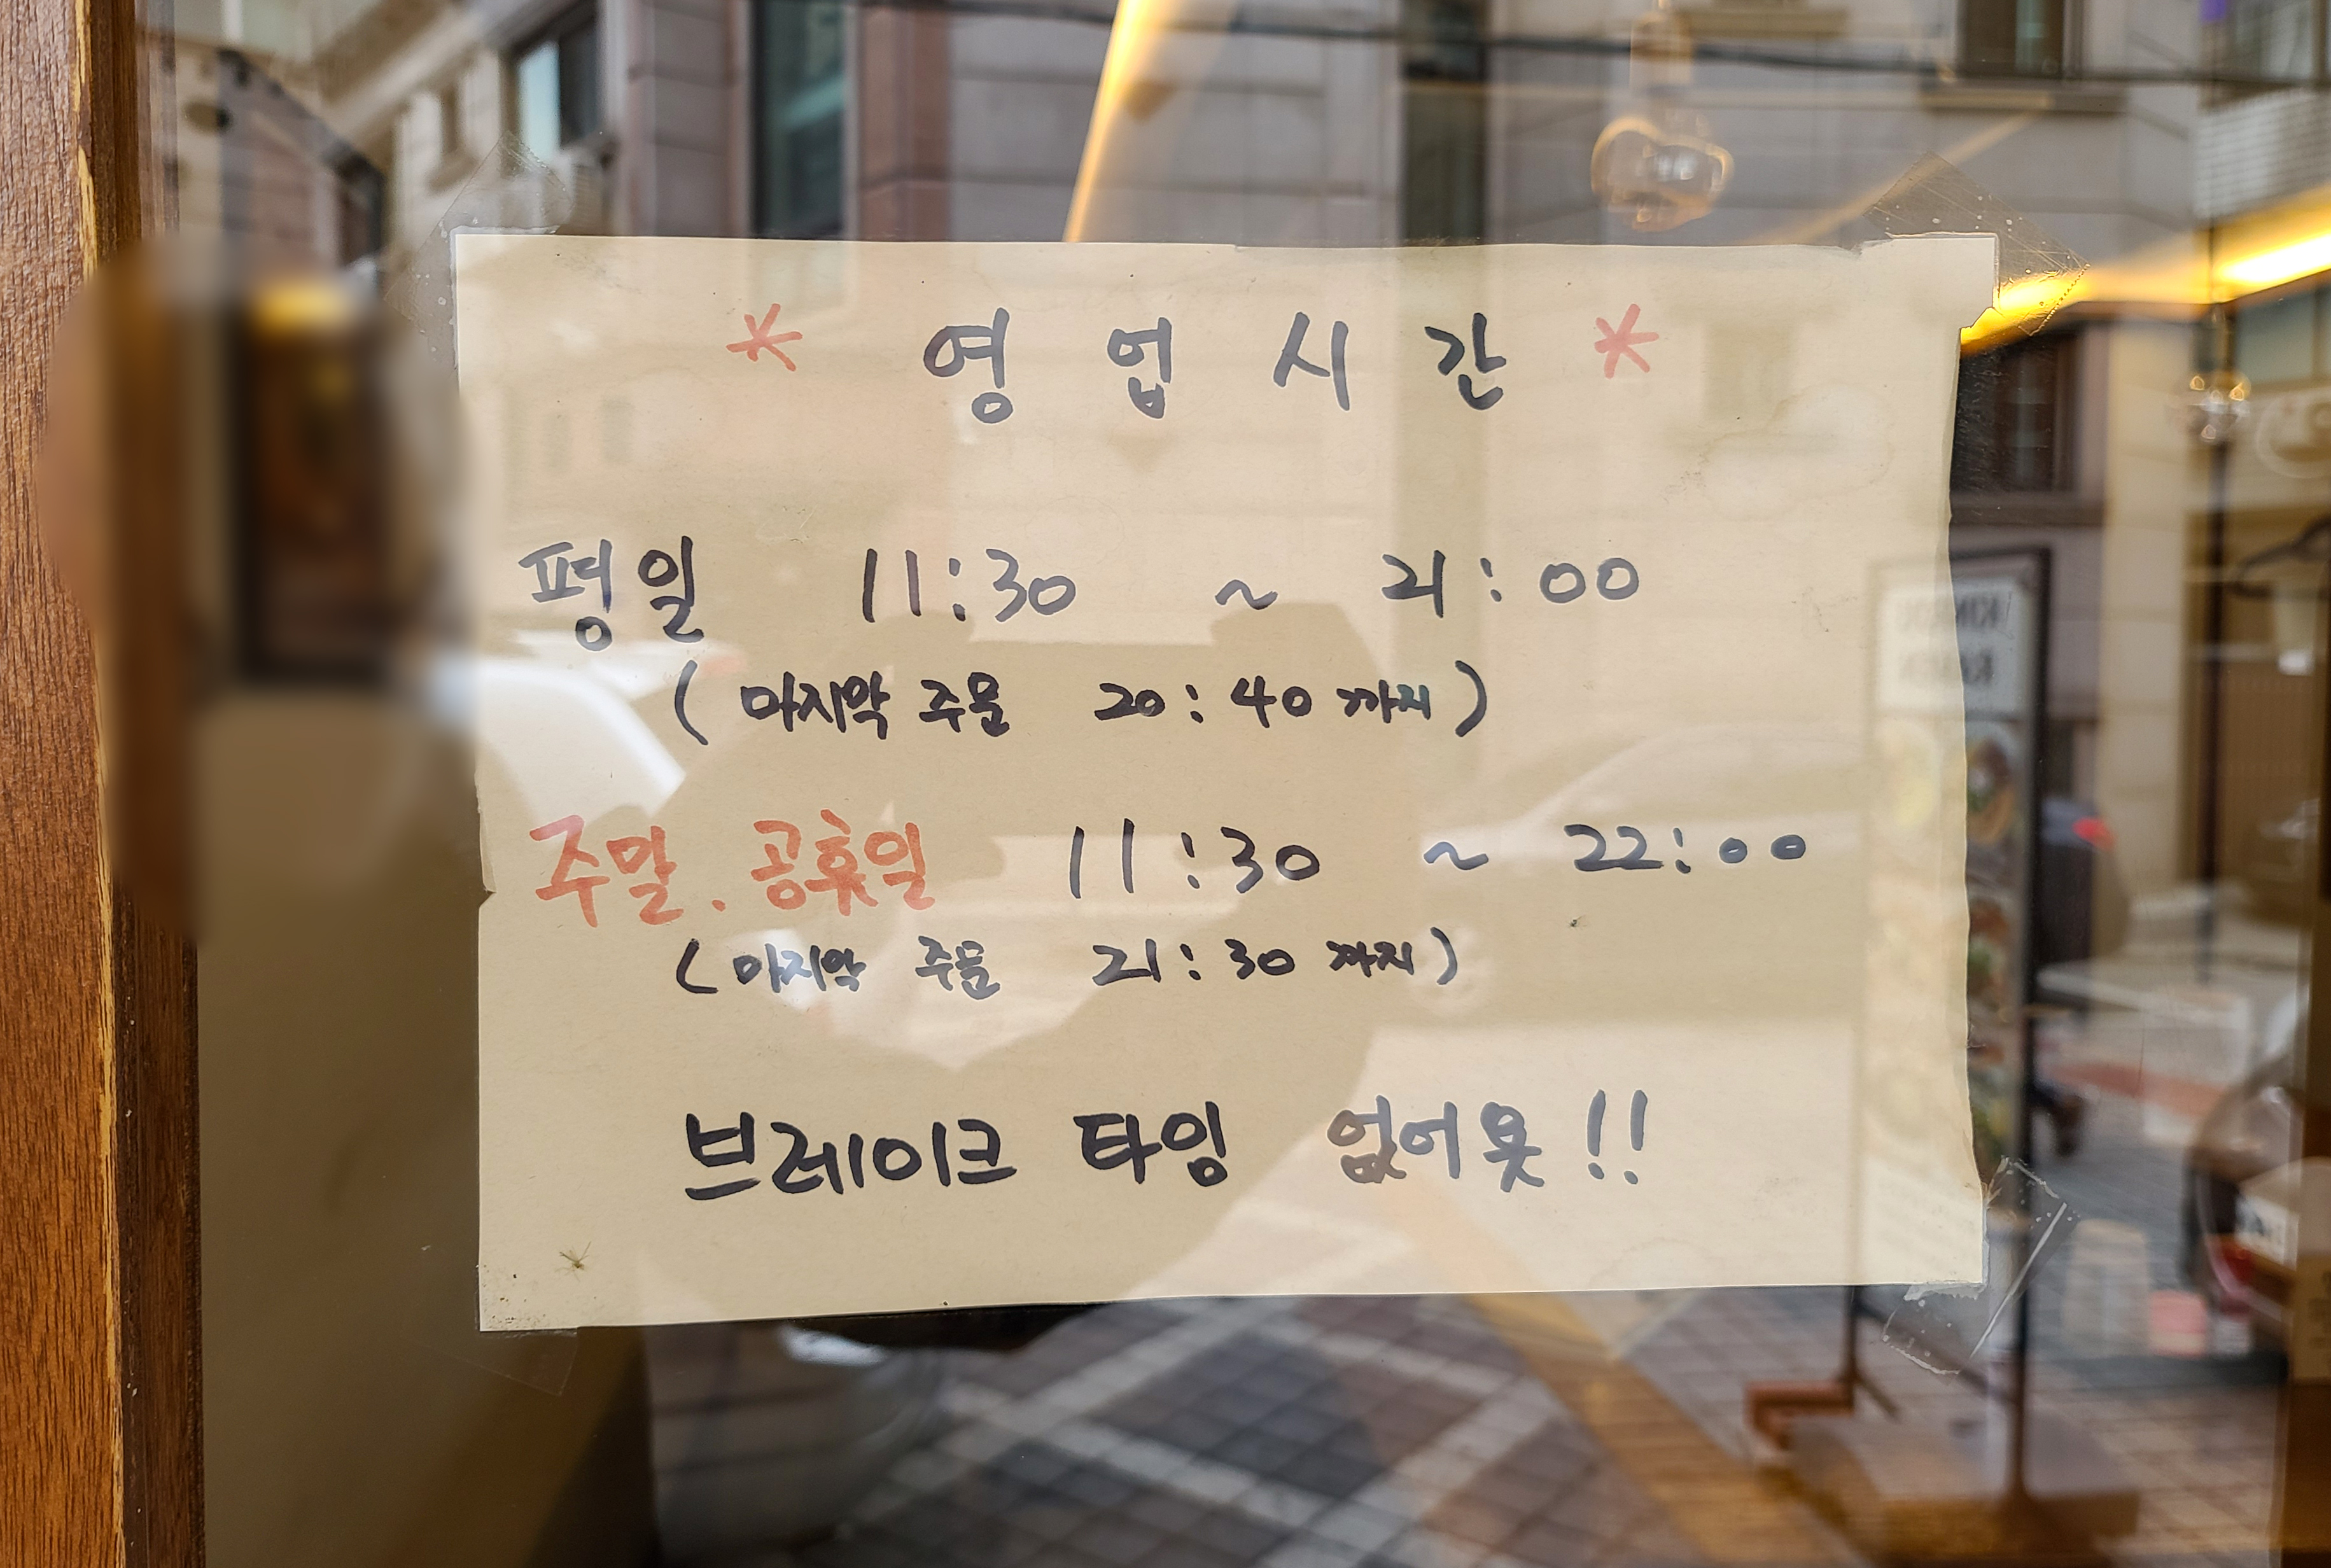 * 영 업 시 간 *
평일 11:30 ~ 21:00
( 마지막 주문 20:40 까지 )
주말. 공휴일 11:30 ~ 22:00
( 마지막 주문 21:30 까지 )
브레이크 타임 없어욧!!